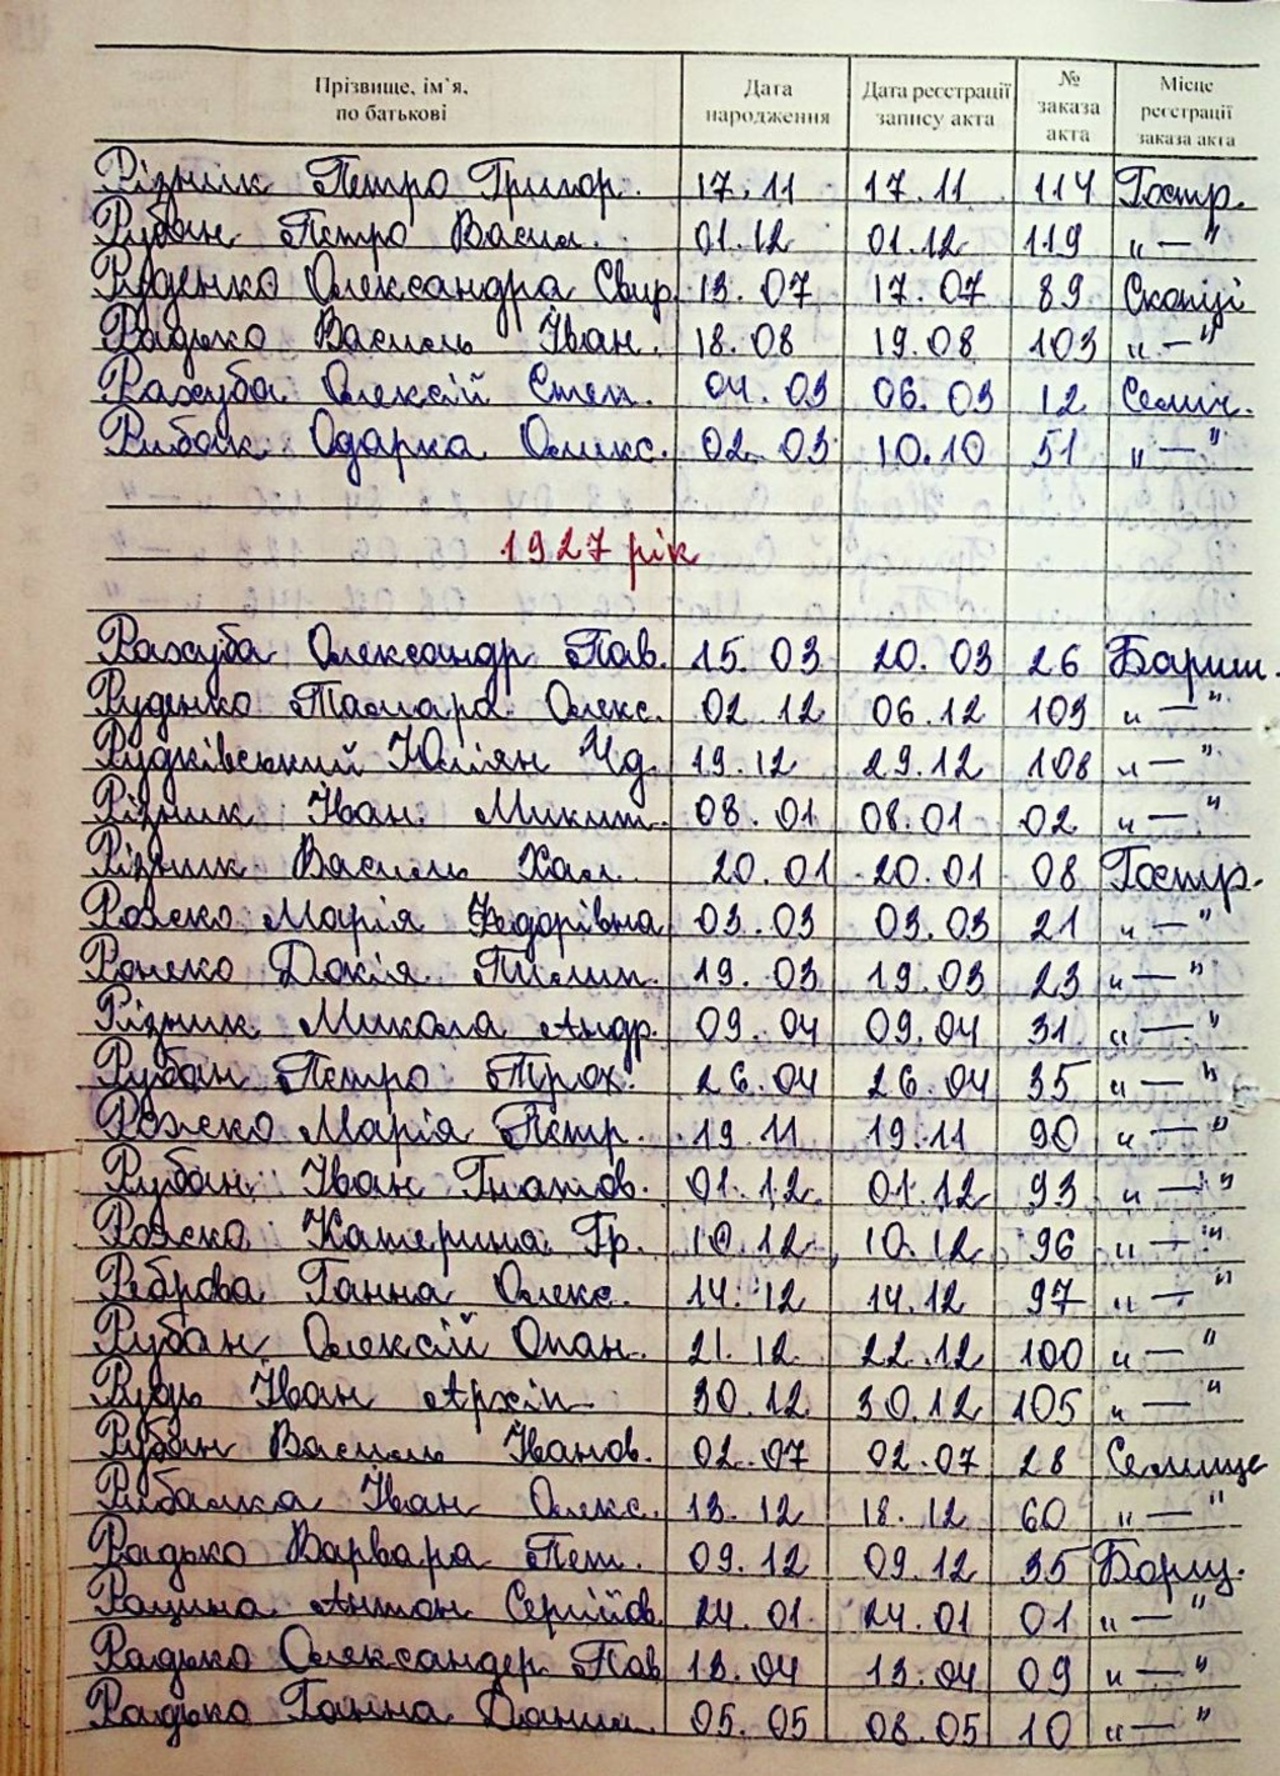 Прізвище, ім'я, по батькові Дата народження Дата реєстрації запису акта № заказа акта Місце реєстрації заказа акта
Різник Петро Григор. 17.11 17.11 114 Гостр.
Рубан Петро Васил. 01.12 01.12 119 „ — "
Руденко Олександра Свир. 13.07 17.07 89 Скопці
Радько Василь Іван. 18.08 19.08 103 „ — "
Рахуба Олексій Степ. 04.03 06.03 12 Селищ.
Рибак Одарка Олекс. 02.03 10.10 51 „ — "
1927 рік
Рахуба Олександр Пав. 15.03 20.03 26 Бариш.
Руденко Тамара Олекс. 02.12 06.12 103 „ — "
Рудківський Юліян 19.12 29.12 108 „ — "
Різник Іван Микит. 08.01 08.01 02 „ — "
Різник Василь Хал. 20.01 20.01 08 Гостр.
Рожко Марія Федорівна 03.03 03.03 21 „ — "
Рожко Докія Пилип. 19.03 19.03 23 „ — "
Різник Микола Андр. 09.04 09.04 31 „ — "
Рубан Петро Трох. 26.04 26.04 35 „ — "
Рожко Марія Петр. 19.11 19.11 90 „ — "
Рубан Іван Гнатов. 01.12 01.12 93 „ — "
Рожко Катерина Гр. 10.12 10.12 96 „ — "
Реброва Ганна Олекс. 14.12 14.12 97 „ — "
Рубан Олексій Опан. 21.12 22.12 100 „ — "
Рудь Іван Архіп 30.12 30.12 105 „ — "
Рубан Василь Іванов. 02.07 02.07 28 Селище
Рибалка Іван Олекс. 13.12 18.12 60 „ — "
Радько Варвара Пет. 09.12 09.12 35 Борщ.
Рацина Антон Сергійов. 24.01 24.01 01 „ — "
Радько Олександер Пав 13.04 13.04 09 „ — "
Радько Ганна Данил. 05.05 08.05 10 „ — "